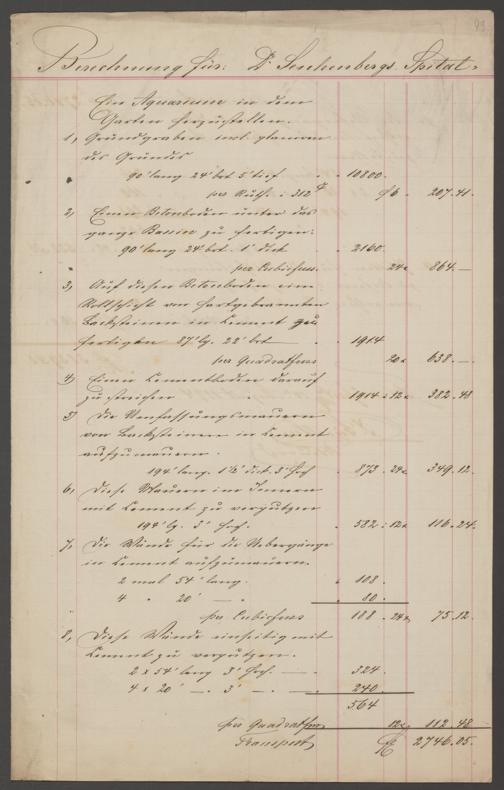 Berechnung für: Dr Senckenbergs Spital.
Ein Aquarium in dem
Garten herzustellen.
1, Grundgraben incl. planiren
des Grundes
90' lang 24' brt 5' tief 10800.
per Ruth. 312 f 6. 207.41.
2, Einen Betonboden unter das
ganze Bassin zu fertigen:
90' lang 24' brt. 1' dick 2160.
per Cubicfuss. 24x 864.—
3, Auf diesen Betonboden eine
Rollschicht von hartgebrannten
Backsteinen in Cement zu
fertigten 87' lg. 22' brt 1914
per Quadratfuss 20x 638.—.
4, Einen Cementboden darauf
zu streichen 1914 : 12x 382.48
5, Die Umfassungsmauern
von Backsteinen in Cement
aufzumauern.
194' lang. 1½' dick. 3' hoch 873. 24x 349.12.
6, Diese Mauern im Innern
mit Cement zu verputzen
194' lg. 3' hoch. 582 : 12x 116.24.
7, Die Wände für die Uebergänge
in Cement aufzumauern.
2 mal 54' lang. 108.
4 " 20' — 80.
per Cubicfuss 188. 24x 75.12.
8, Diese Wände einseitig mit
Cement zu verputzen.
2 x 54' lang 3' hoch. — 324.
4 x 20' — 3' — 240.
564
per Quadratfuss 12x 112.48
Transport f 2746.05.